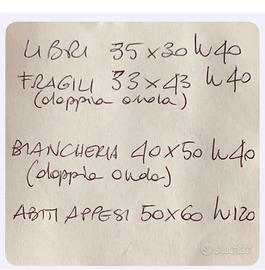 LIBRI 35x30 h40
FRAGILI 33x43 h40
(doppia onda)
BIANCHERIA 40x50 h40
(doppia onda)
ABITI APPESI 50x60 h120
subito.it